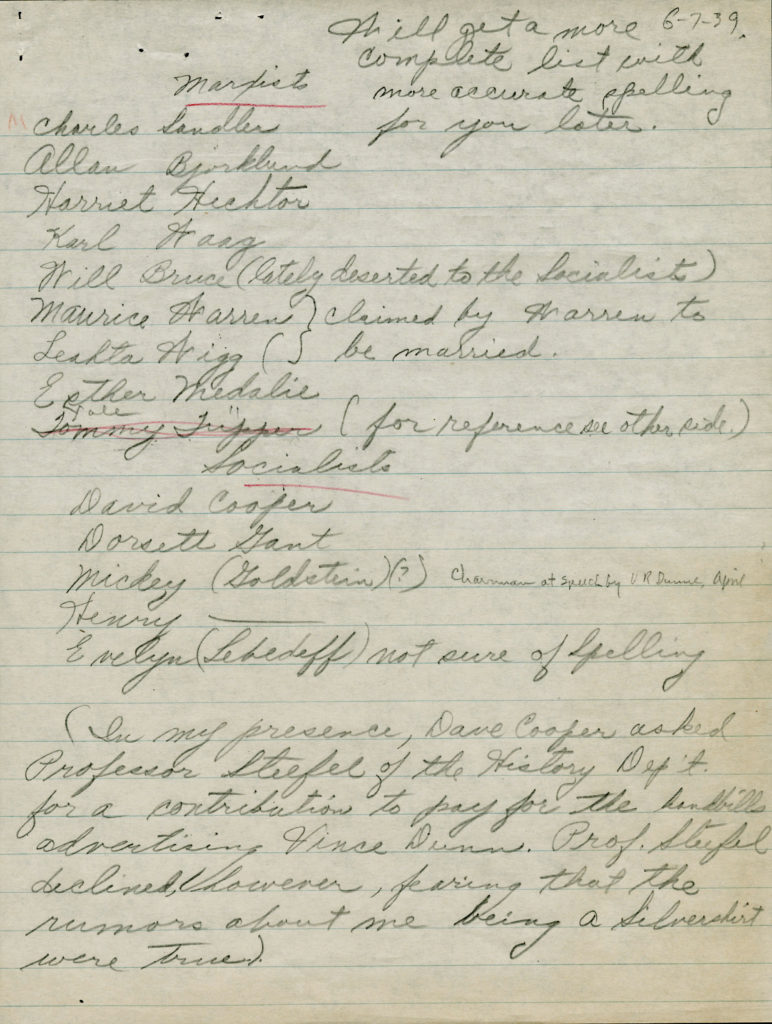 Will get a more 6-7-39.
complete list with
more accurate spelling
for you later.
Marxists
M Charles Sandler
Allan Bjorklund
Harriet Hechtor
Karl Waag
Will Bruce (lately deserted to the Socialists)
Maurice Warren } claimed by Warren to
Leahta Wigg ( ) be married.
Esther Medalie
Tommy Tripper (for reference see other side.)
Socialists
David Cooper
Dorsett Gant
Mickey (Goldstein)(?) Chairman at speech by V R Dunne, April
Henry ———
Evelyn (Lebedeff) not sure of spelling
(In my presence, Dave Cooper asked
Professor Steefel of the History Dep't.
for a contribution to pay for the handbills
advertising Vince Dunn. Prof. Steefel
declined, however, fearing that the
rumors about me being a Silvershirt
were true).